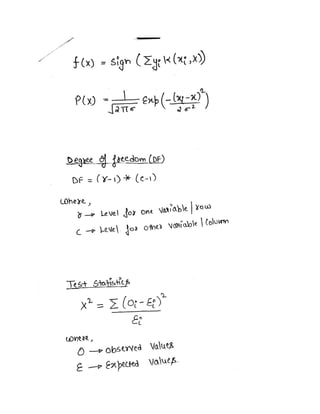 f(x) = sign (Σyᵢ K(xᵢ,x))
P(x) = 1/√2πσ Exp(-(xᵢ-x)²/2σ²)
Degree of freedom (DF)
DF = (r-1) * (c-1)
where,
r → Level for one variable | row
c → Level for other variable | Column
Test Statistics
X² = Σ (Oᵢ - Ɛᵢ)²/Ɛᵢ
where,
O → observed Values
Ɛ → Expected Values.